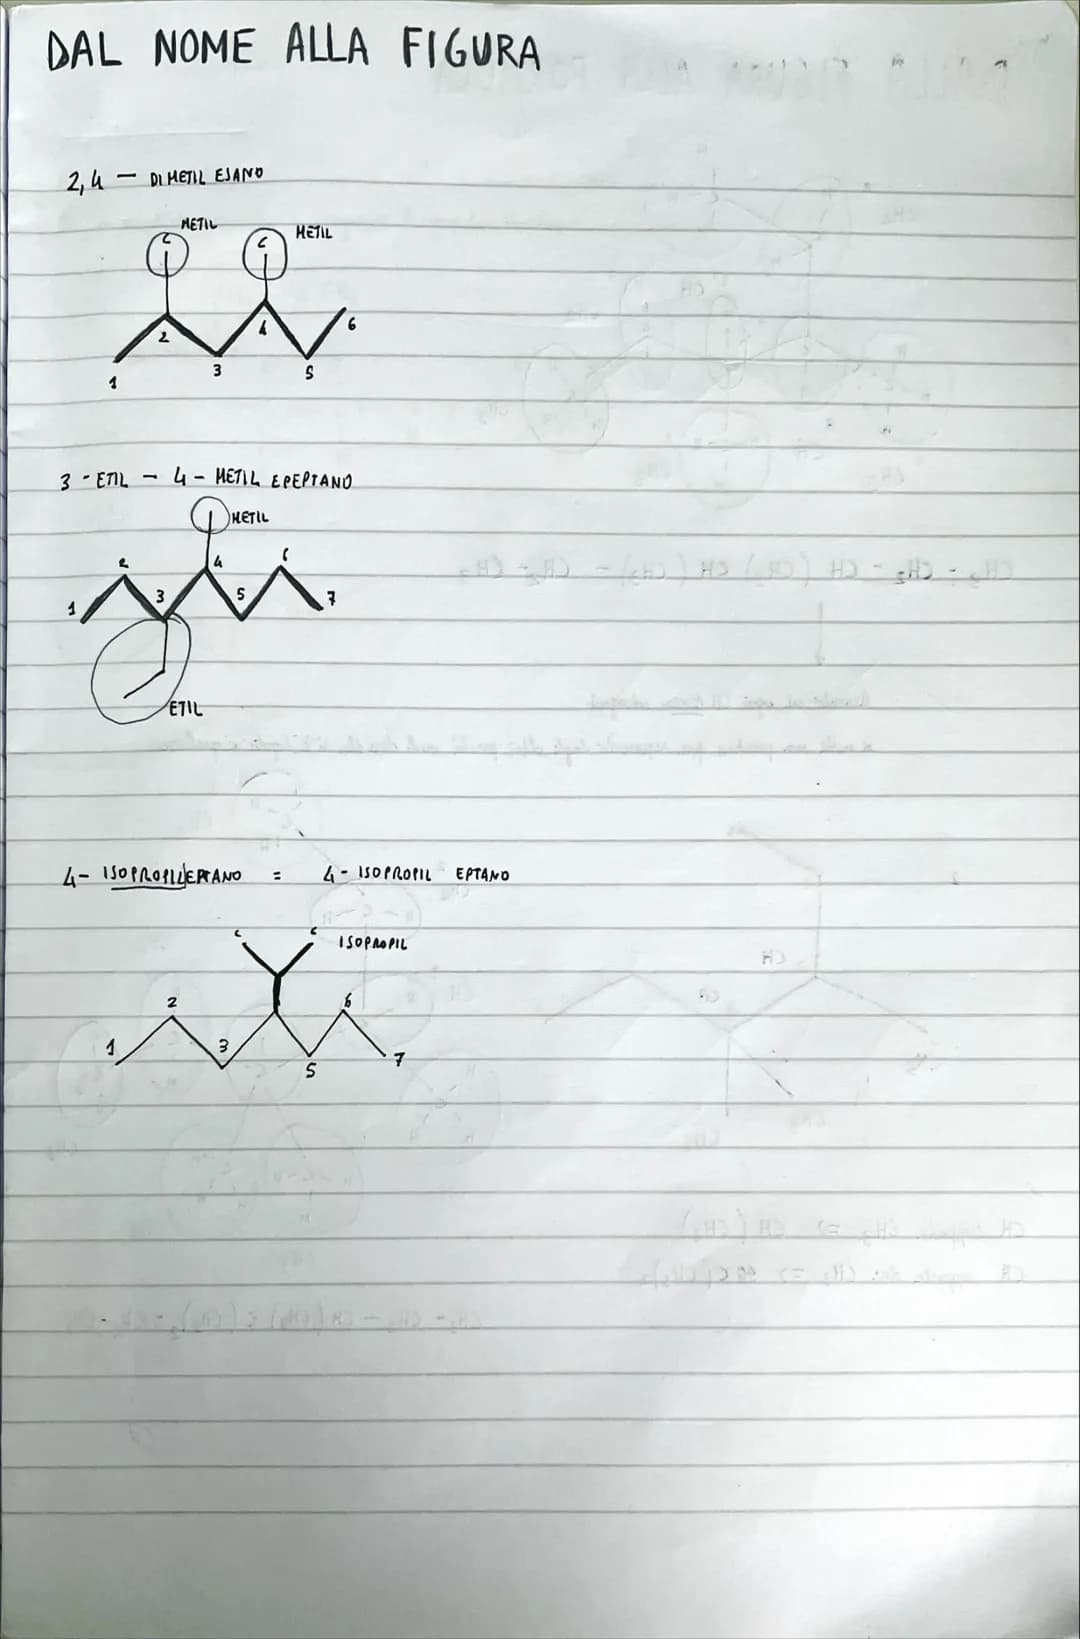 DAL NOME ALLA FIGURA
2,4 - DIMETIL ESANO
METIL METIL
C C
2 4 6
1 3 5
3 - ETIL - 4 - METIL EPEPTANO
METIL
2 4 6
1 3 5 7
ETIL
4- ISOPROPILEPTANO = 4- ISOPROPIL EPTANO
C C ISOPROPIL
2 6
1 3 5 7